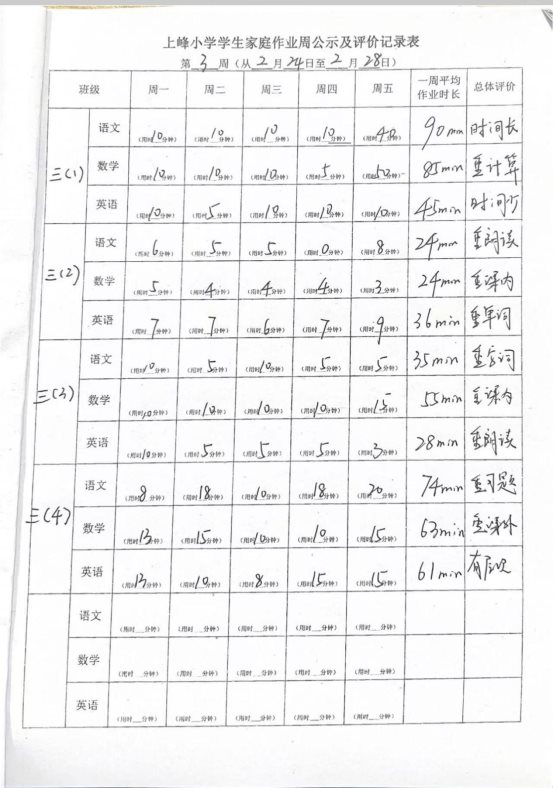 上峰小学学生家庭作业周公示及评价记录表
第 3 周（从 2 月 24 日至 2 月 28 日）
班级 周一 周二 周三 周四 周五 一周平均作业时长 总体评价
三(1) 语文 （用时10分钟） （用时10分钟） （用时10分钟） （用时10分钟） （用时40分钟） 90min 时间长
数学 （用时10分钟） （用时10分钟） （用时10分钟） （用时5分钟） （用时50分钟） 85min 重计算
英语 （用时10分钟） （用时5分钟） （用时10分钟） （用时10分钟） （用时10分钟） 45min 时间少
三(2) 语文 （用时6分钟） （用时5分钟） （用时5分钟） （用时0分钟） （用时8分钟） 24min 重朗读
数学 （用时5分钟） （用时4分钟） （用时4分钟） （用时4分钟） （用时3分钟） 24min 重课内
英语 （用时7分钟） （用时7分钟） （用时6分钟） （用时7分钟） （用时9分钟） 36min 重单词
三(3) 语文 （用时10分钟） （用时5分钟） （用时10分钟） （用时5分钟） （用时5分钟） 35min 重 词
数学 （用时10分钟） （用时10分钟） （用时10分钟） （用时10分钟） （用时15分钟） 55min 重课内
英语 （用时10分钟） （用时5分钟） （用时5分钟） （用时5分钟） （用时3分钟） 28min 重朗读
三(4) 语文 （用时8分钟） （用时18分钟） （用时10分钟） （用时18分钟） （用时20分钟） 74min 重习题
数学 （用时13分钟） （用时15分钟） （用时10分钟） （用时10分钟） （用时15分钟） 63min 重课外
英语 （用时13分钟） （用时10分钟） （用时8分钟） （用时15分钟） （用时15分钟） 61min 有层次
语文 （用时__分钟） （用时__分钟） （用时__分钟） （用时__分钟） （用时__分钟）
数学 （用时__分钟） （用时__分钟） （用时__分钟） （用时__分钟） （用时__分钟）
英语 （用时__分钟） （用时__分钟） （用时__分钟） （用时__分钟） （用时__分钟）